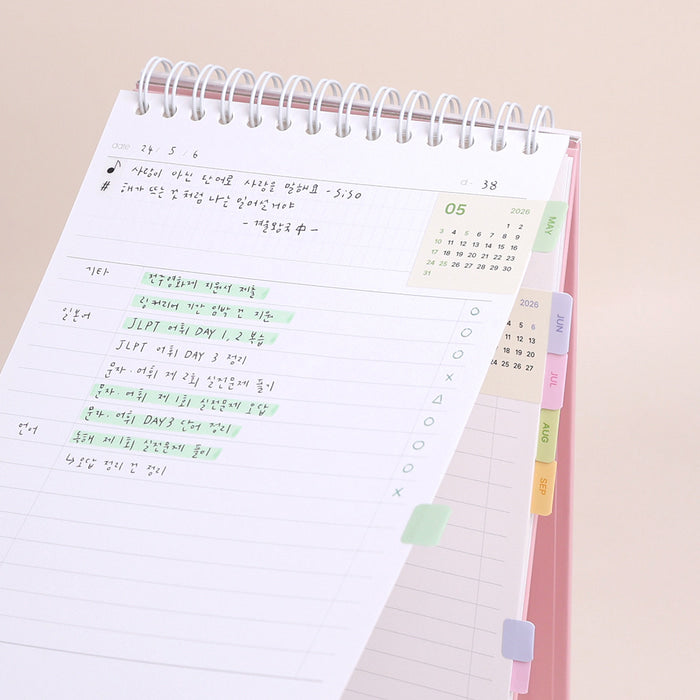 date 24 / 5 / 6
d- 38
♪ 사랑이 아닌 단어로 사랑을 말해요 - SiSO
# 해가 뜨는 것처럼 나는 일어설거야
05 2026
1 2
3 4 5 6 7 8 9
10 11 12 13 14 15 16
17 18 19 20 21 22 23
24 25 26 27 28 29 30
31
MAY
기타 전주영화제 지원서 제출
링커리어 기간 임박 건 지원
일본어 JLPT 어휘 DAY 1, 2 복습
JLPT 어휘 DAY 3 정리
문자·어휘 제 2회 실전문제 풀기
문자·어휘 제 1회 실전문제 오답
문자·어휘 DAY3 단어 정리
언어 독해 제 1회 실전문제 풀이
↳ 오답 정리 건 정리
2026
4 5 6
11 12 13
18 19 20
24 25 26 27
JUN
JUL
AUG
SEP